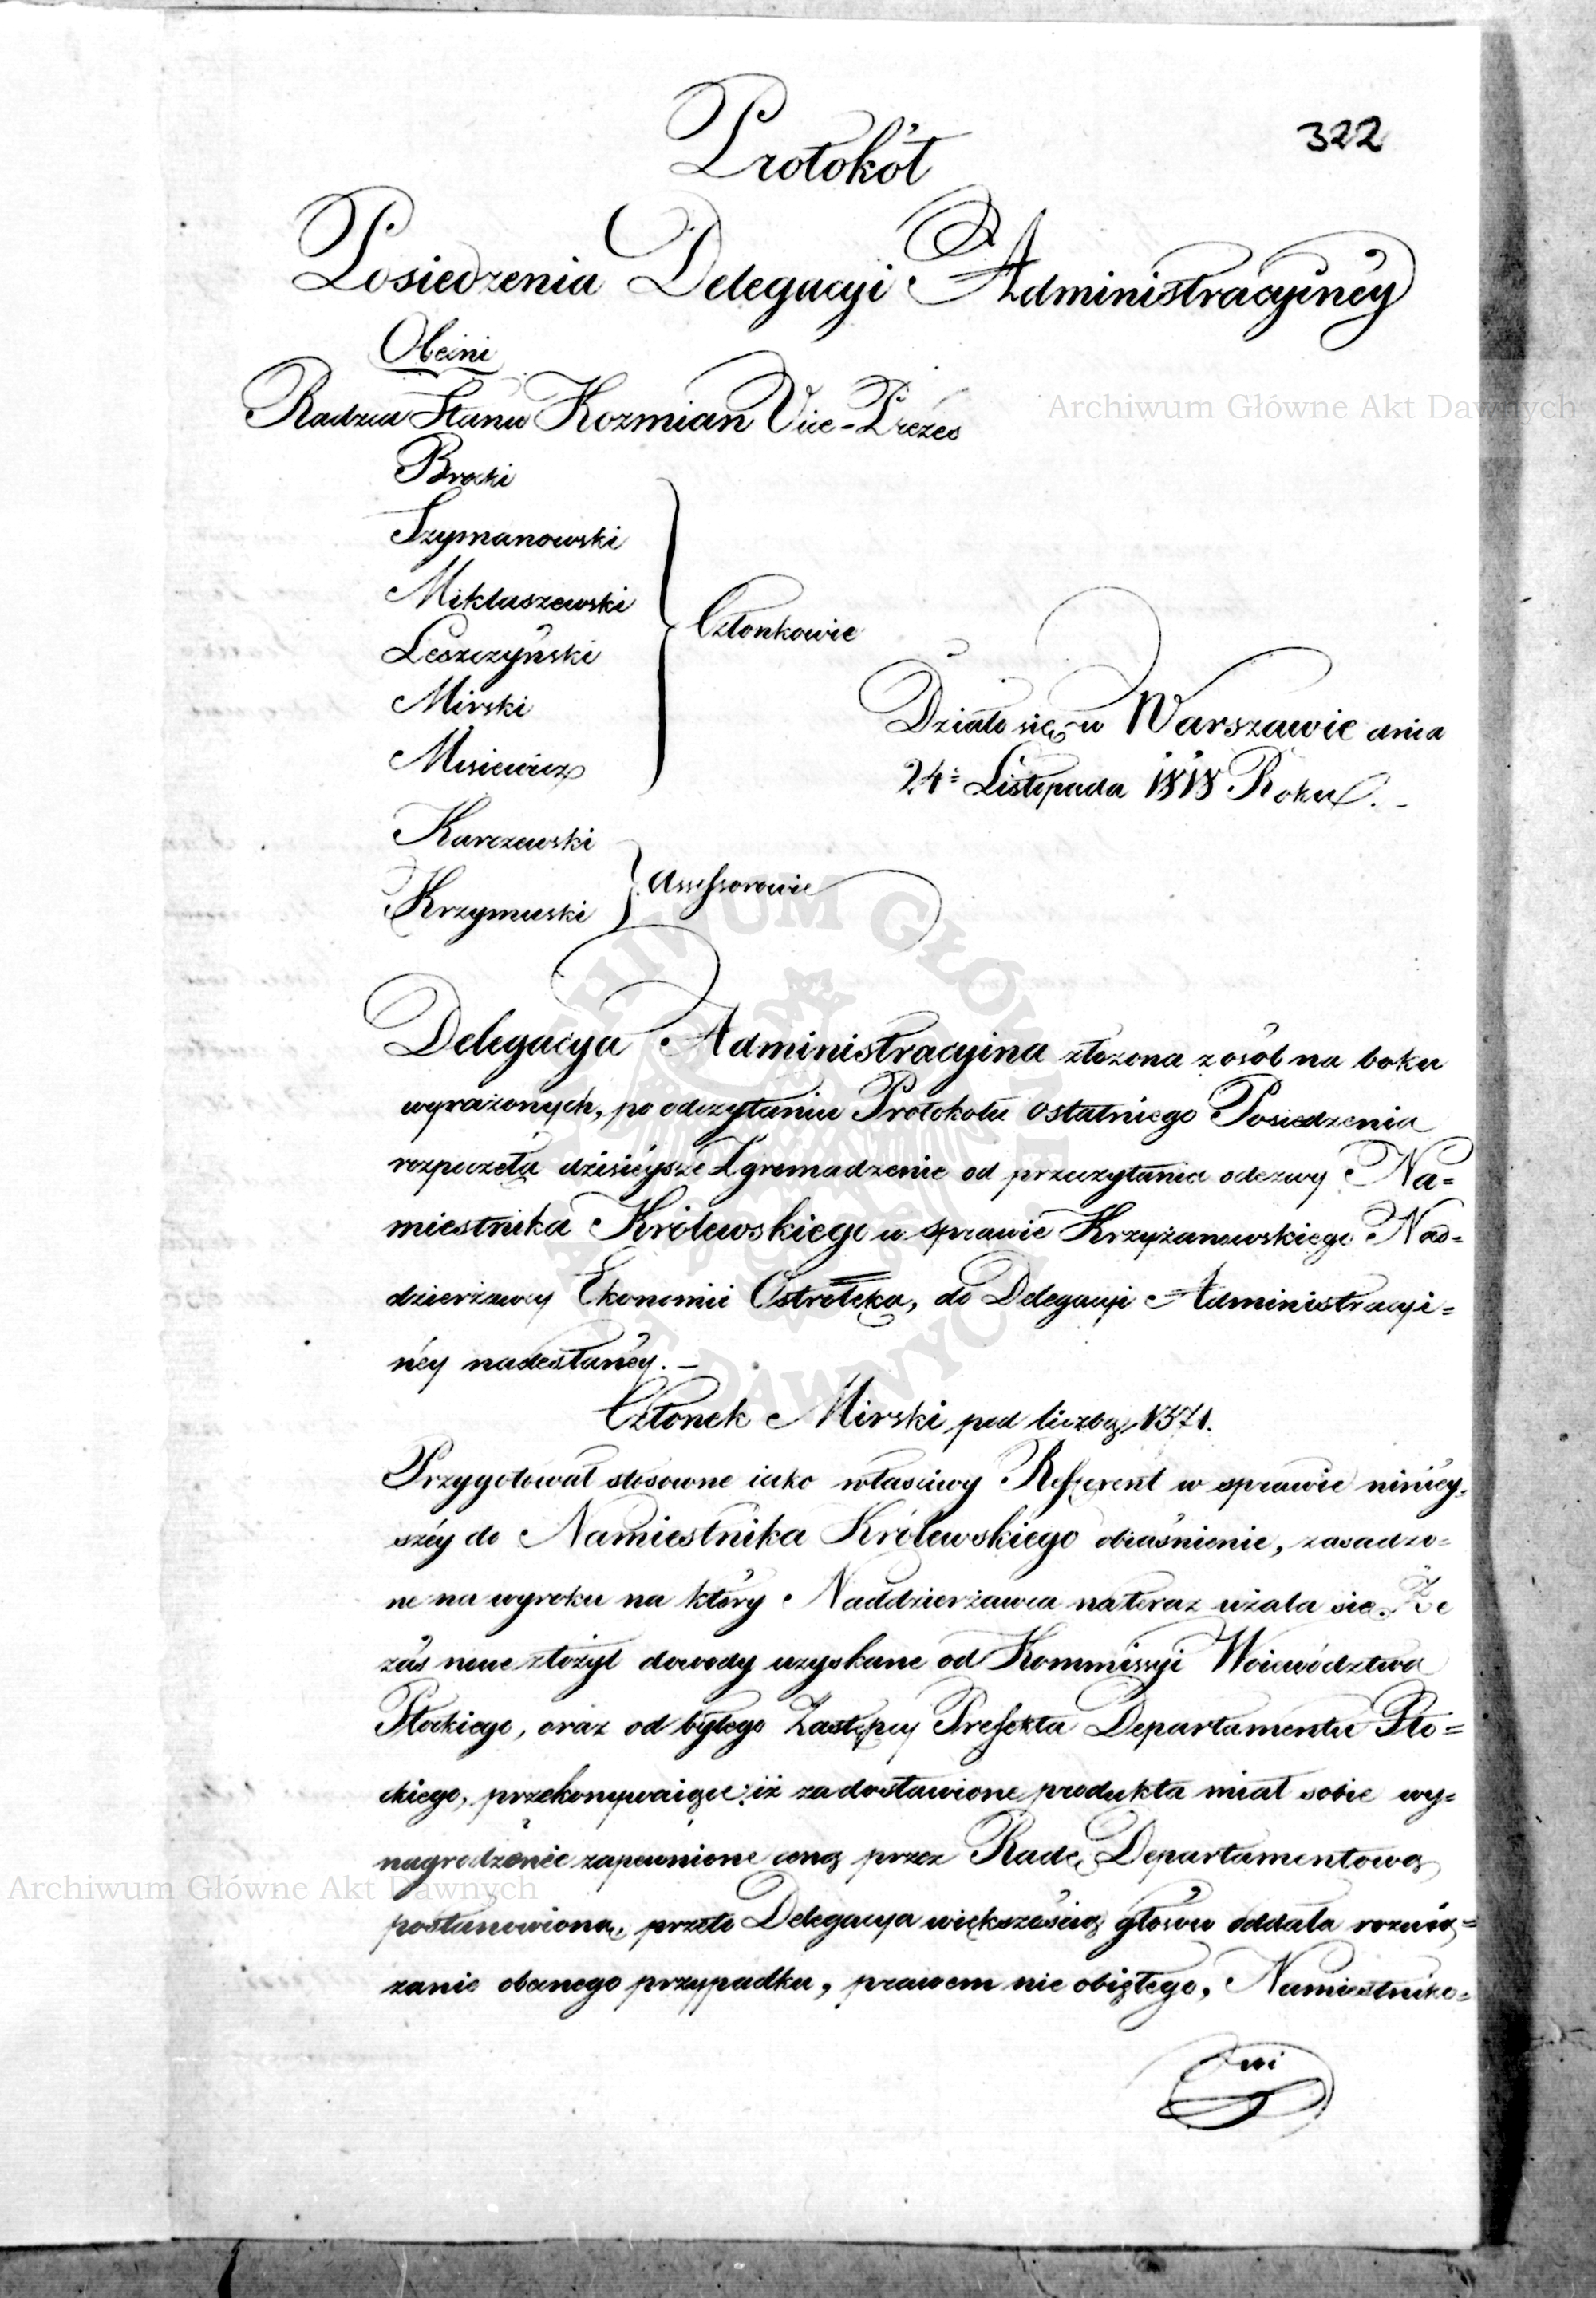 322
Protokół
Posiedzenia Delegacyi Administracyinéy
Obecni
Radzca Stanu Kozmian Vice-Prezes
Brocki
Szymanowski
Miklaszewski
Leszczyński
Mirski
Misiewicz
Członkowie
Działo się w Warszawie dnia
24º Listopada 1818 Roku. -
Karczewski
Krzymuski
Assessorowie
Delegacya Administracyina złożona z osób na boku
wyrażonych, po odczytaniu Protokołu ostatniego Posiedzenia
rozpoczęła dzisiéysze Zgromadzenie od przeczytania odezwy Na=
miestnika Królewskiego w sprawie Krzyżanowskiego Nad=
dzierżawcy Ekonomii Ostrołęka, do Delegacyi Administracyi=
néy nadesłanéy. -
Członek Mirski pod liczbą 1371.
Przygotował stosowne iako właściwy Referent w sprawie niniéy=
széy do Namiestnika Królewskiego obiaśnienie, zasadzo=
ne na wyroku na który Naddzierżawca na teraz użala się. Że
zaś nowe złożył dowody uzyskane od Kommissyi Woiewództwa
Płockiego, oraz od byłego Zastępcy Prefekta Departamentu Pło=
ckiego, przekonywaiące: iż za dostawione produkta miał sobie wy=
nagrodzenie zapewnione ceną przez Radę Departamentową
postanowioną, przeto Delegacya większością głosów oddała rozwią=
zanie obecnego przypadku, prawem nie obiętego, Namiestniko=
wi
Archiwum Główne Akt Dawnych
Archiwum Główne Akt Dawnych
ARCHIWUM GŁÓWNE AKT DAWNYCH